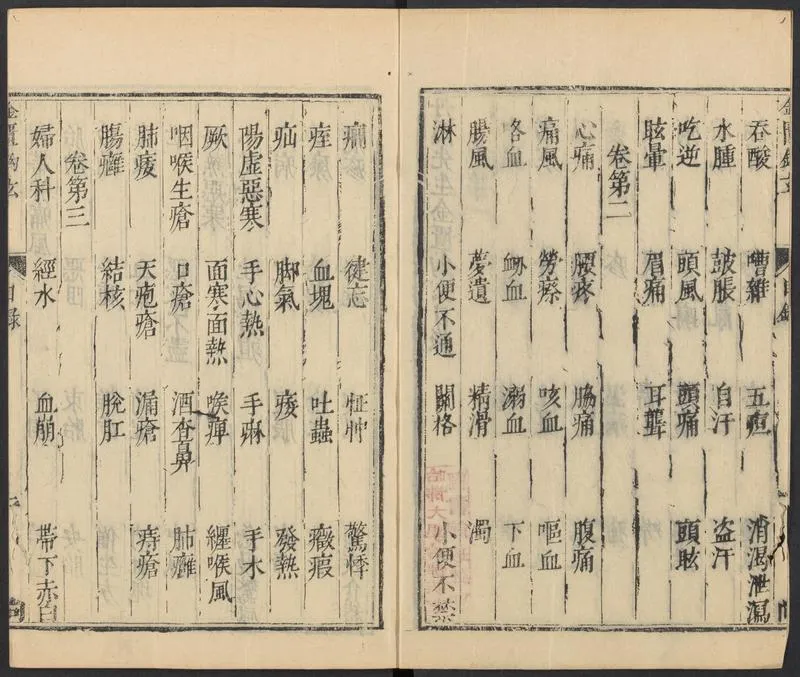 吞酸 嘈雜 五疸 消渴泄瀉
水腫 皷脹 自汗 盗汗
吃逆 頭風 頭痛 頭眩
眩暈 眉痛 耳聾
卷第二
心痛 腰疼 脇痛 腹痛
痛風 勞瘵 咳血 嘔血
咯血 衂血 溺血 下血
腸風 夢遺 精滑 濁
淋 小便不通 關格 小便不禁
健忘 怔忡 驚悸
痓 血塊 吐蟲 癥瘕
疝 脚氣 痿 發熱
陽虛惡寒 手心熱 手麻 手木
厥 面寒面熱 喉痺 纏喉風
咽喉生瘡 口瘡 酒查鼻 肺癰
肺痿 天疱瘡 漏瘡 痔瘡
腸癰 結核 脫肛
卷第三
婦人科 經水 血崩 帶下赤白
目錄